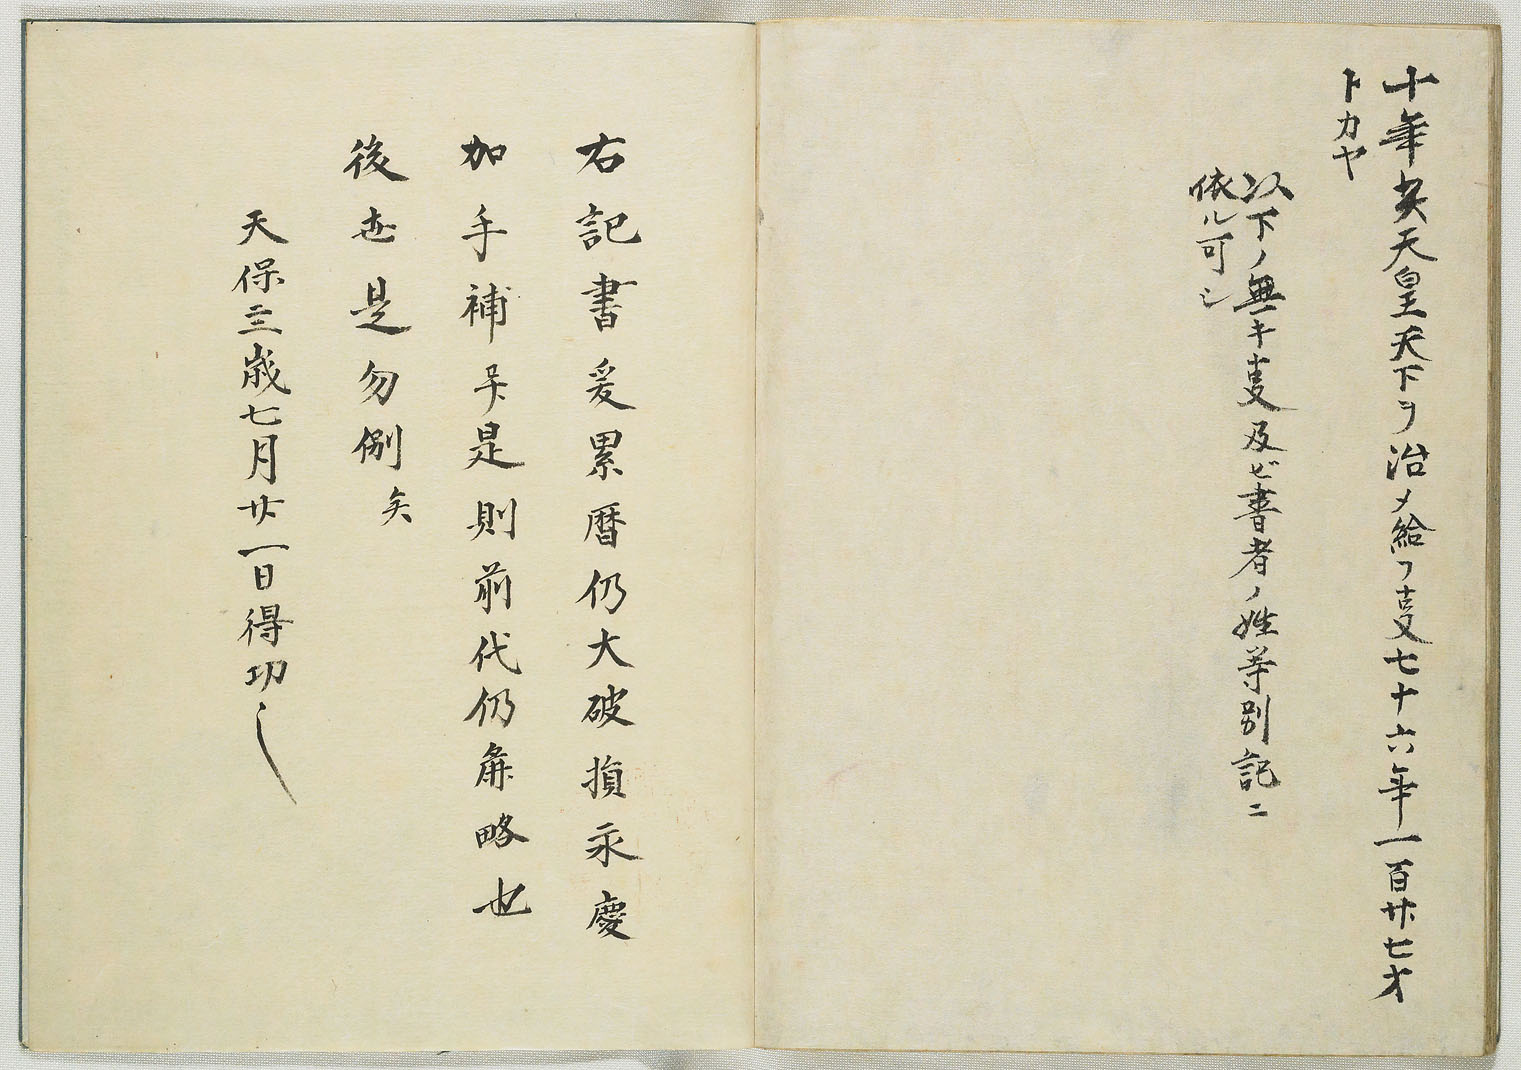 十年癸天皇天下ヲ治メ給フ壴七十六年一百廿七才
トカヤ
以下ノ無キ壴及ビ書者ノ姓等別記ニ
依ル可シ
右記書爰累暦仍大破損永慶
加手補 是則前代仍麁略也
後世是勿例矣
天保三歳七月廿一日得功之